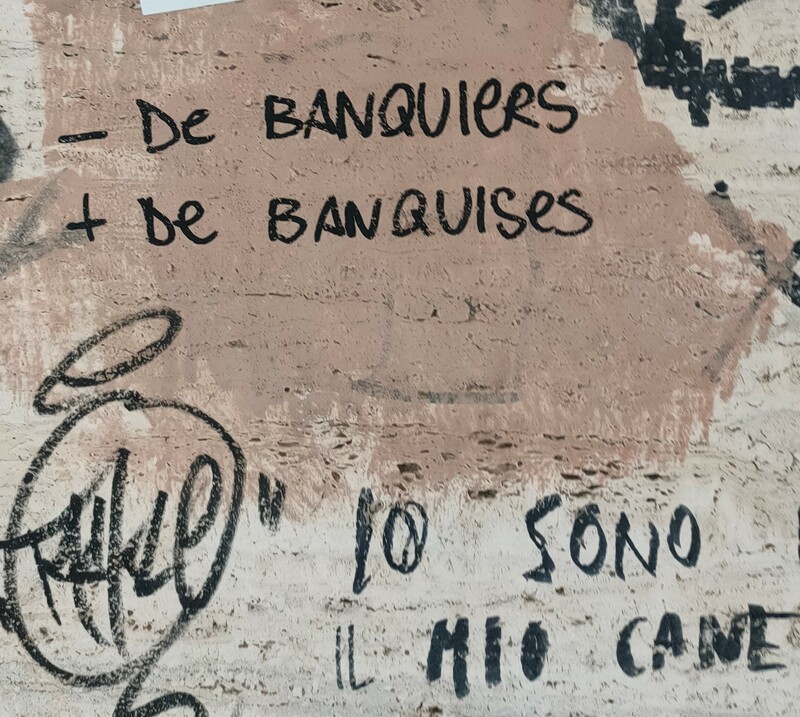 - De BANQUIeRS
+ De BANQUISes
" IO SONO
IL MIO CANE